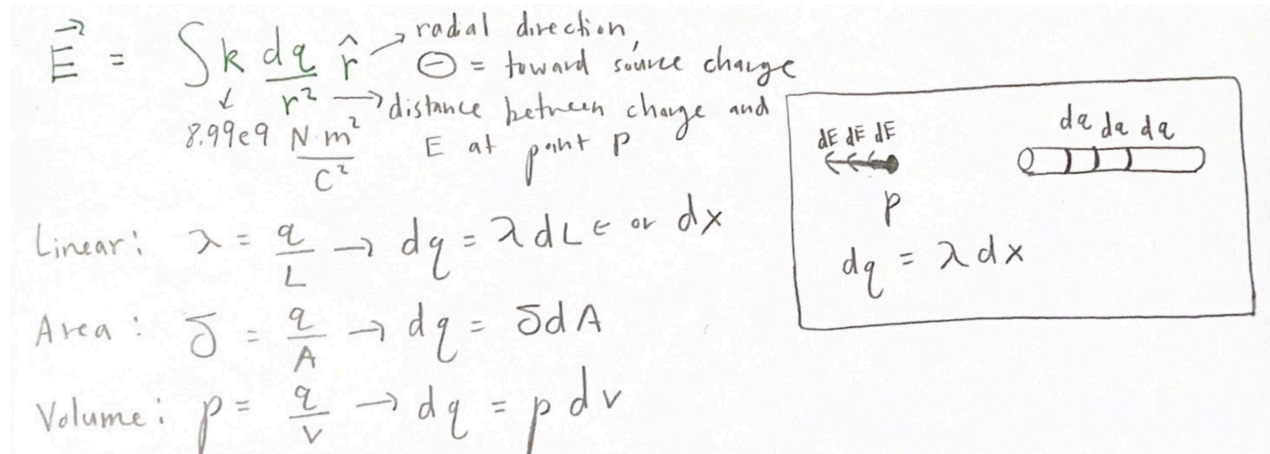 E⃗ = ∫ k dq/r² r̂ → radial direction,
⊖ = toward source charge
r² → distance between charge and
E at point P
8.99e9 N·m²/C²
Linear: λ = q/L → dq = λ dL ← or dx
Area: δ = q/A → dq = δ dA
Volume: p = q/v → dq = p dv
dE dE dE
dq dq dq
P
dq = λ dx